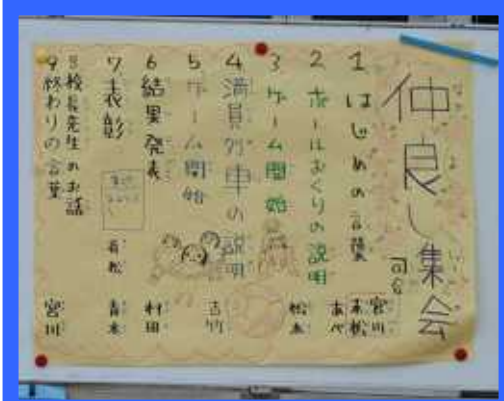 仲良し集会
司会
宮川
赤松
1 はじめの言葉
あべ
2 ボールおくりの説明
松本
3 ゲーム開始
4 満員列車の説明
吉竹
5 ゲーム開始
6 結果発表
村田
7 表彰
有松
青木
8 校長先生のお話
9 終わりの言葉
宮川